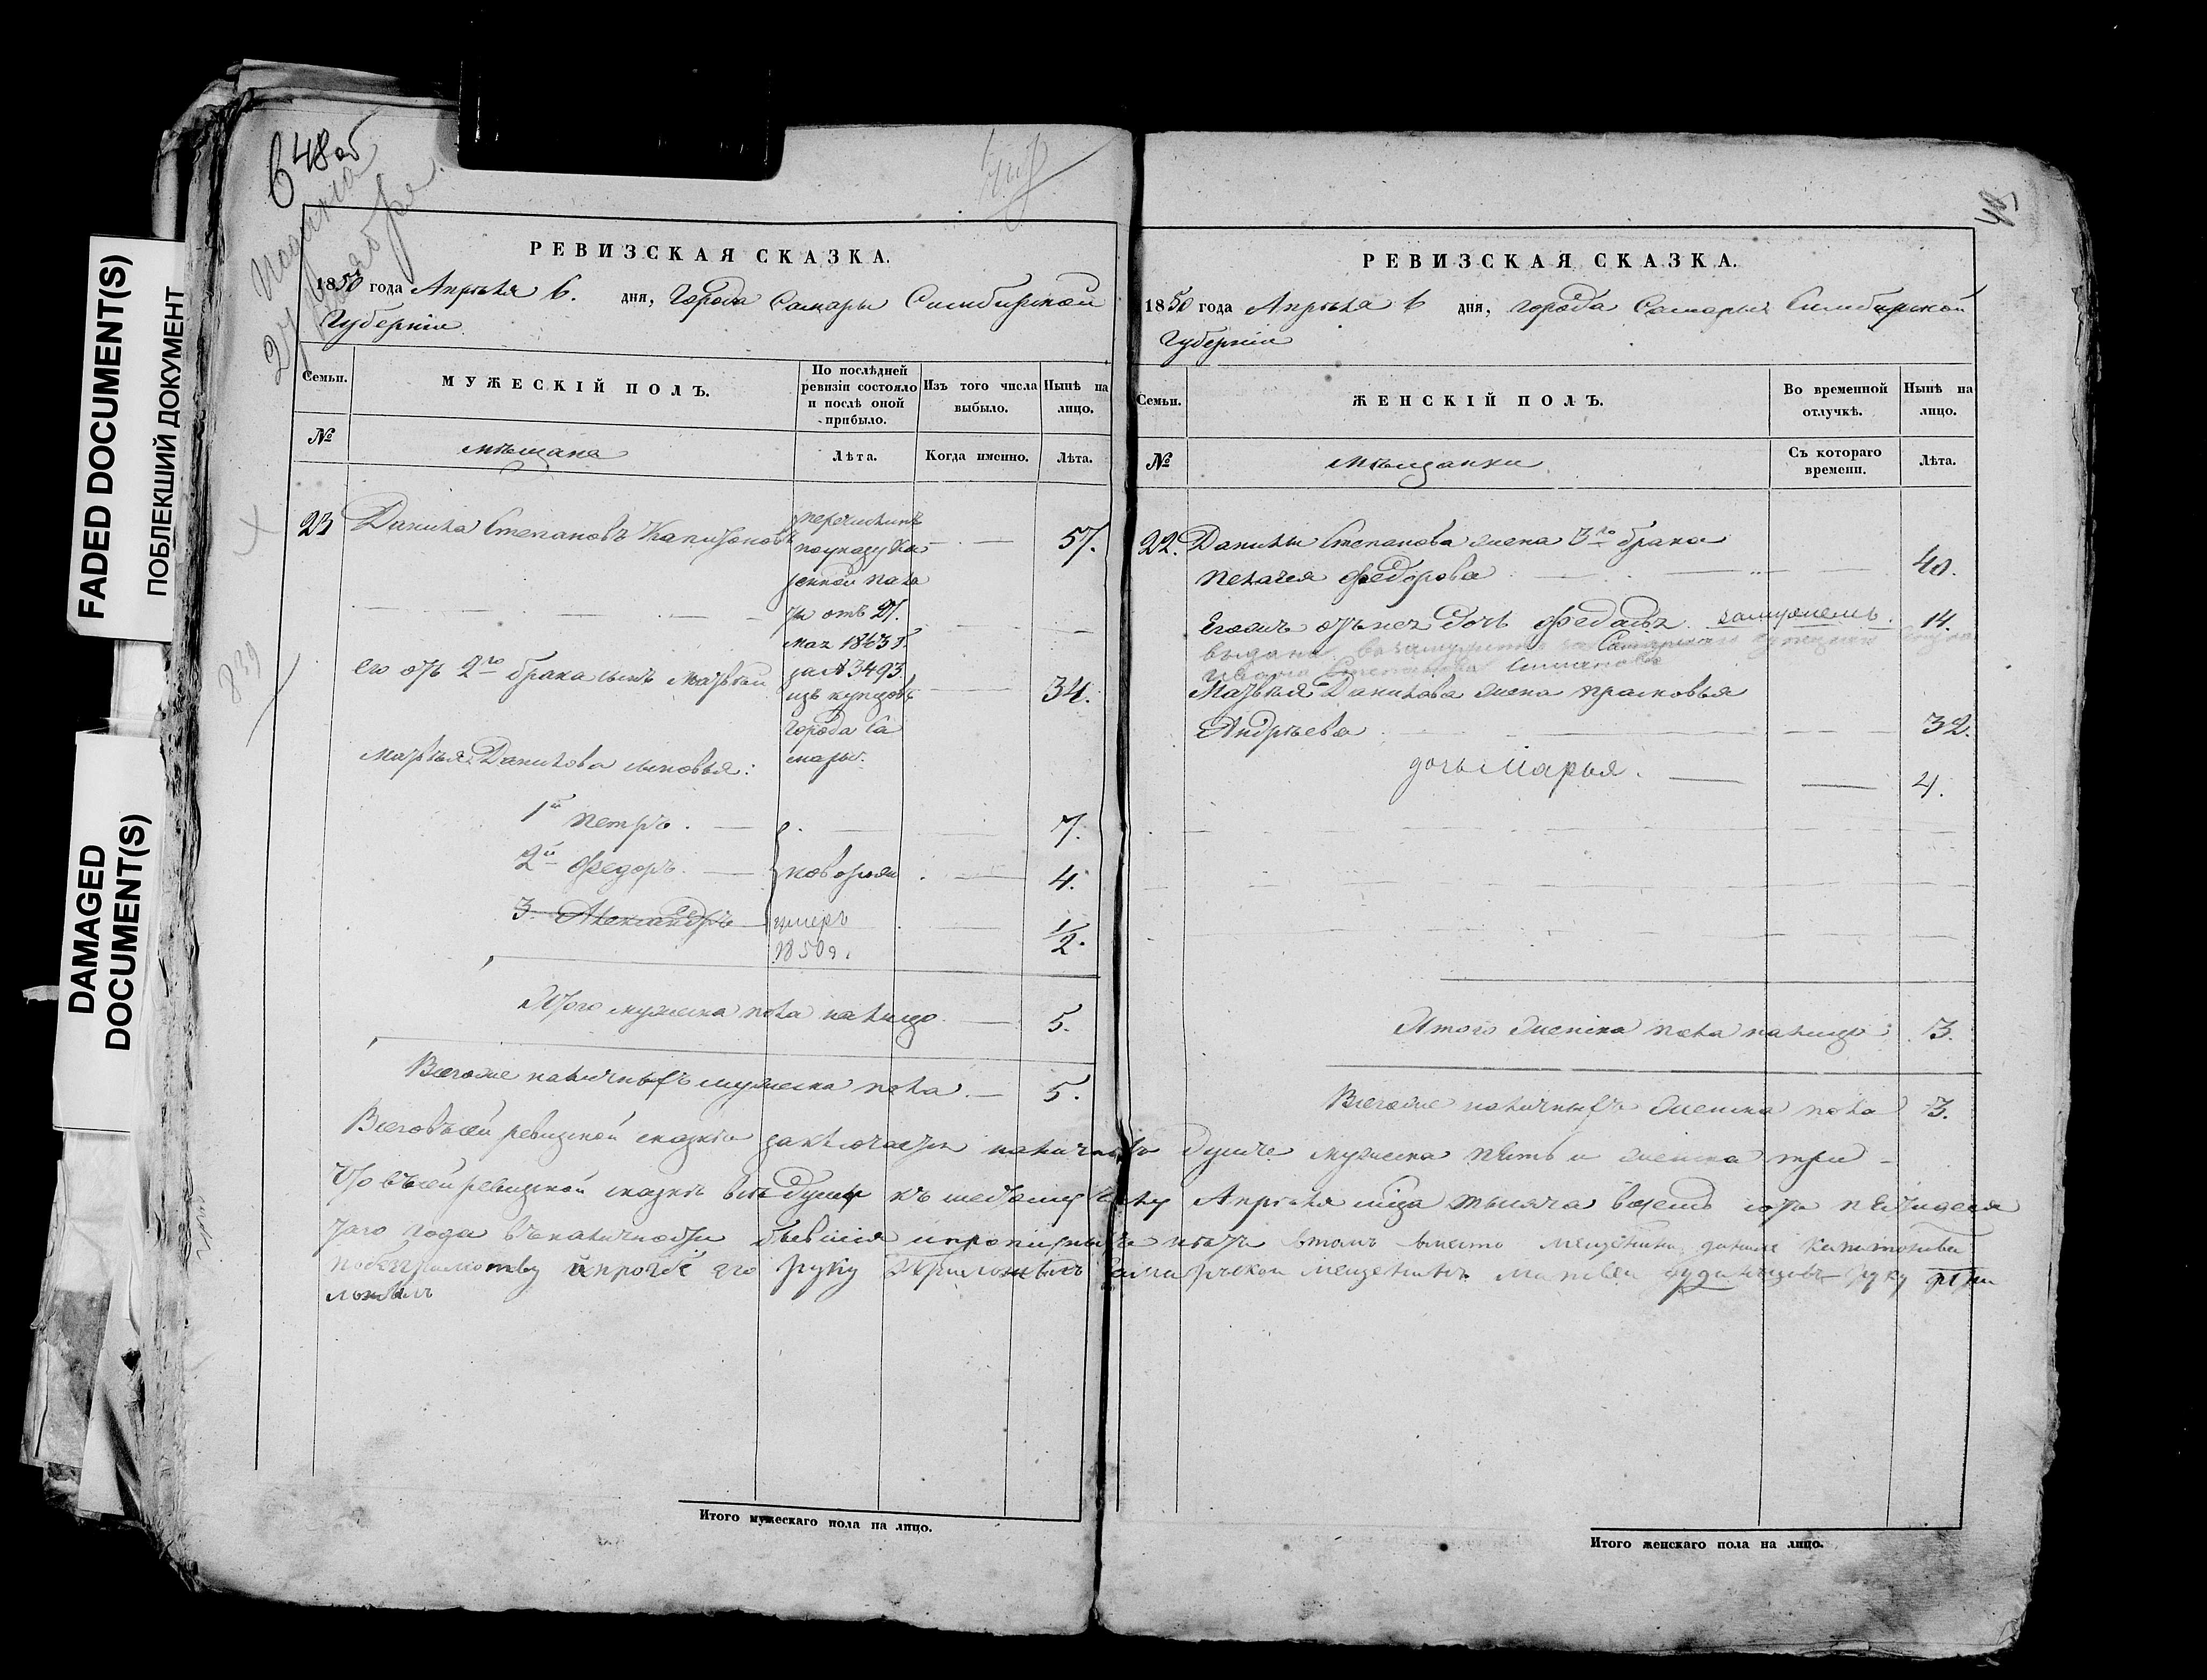 FADED DOCUMENT(S)
ПОБЛЕКШИЙ ДОКУМЕНТ
DAMAGED
DOCUMENT(S)
48об
Подана
839
РЕВИЗСКАЯ СКАЗКА.
1850 года Апрѣля 6. дня, города Самары Симбирской
Губерніи
Семьи.
МУЖЕСКІЙ ПОЛЪ.
По послѣдней
ревизіи состояло
и послѣ оной
прибыло.
Изъ того числа
выбыло.
Нынѣ на
лицо.
№
мѣщане
Лѣта.
Когда именно.
Лѣта.
23 Данила Степановъ Капитоновъ
перечисленъ
по указу Ка
зенной пала
ты отъ 27.
мая 1843 г.
за № 3493
изъ купцовъ
города Са
мары.
57.
его отъ 2го брака сынъ Матвѣй
34.
Матвѣя Данилова сыновья:
1й Петръ. 7.
2й Федоръ. новорож 4.
3. Александръ умеръ
1850 г. 1/2.
Итого мужеска пола налицо 5.
Всегоже наличныхъ мужеска пола. 5.
РЕВИЗСКАЯ СКАЗКА.
1850 года Апрѣля 6 дня, города Самары Симбирской
Губерніи
Семьи.
ЖЕНСКІЙ ПОЛЪ.
Во временной
отлучкѣ.
Нынѣ на
лицо.
№
мѣщанки
Съ котораго
времени.
Лѣта.
22. Данилы Степанова жена 3го брака
Пелагея Федорова 40.
Егожъ отъ нея дочь замужемъ. 14.
выдана въ замужество за Самарскаго
Ивана Степанова
Матвѣя Данилова жена Прасковья
Андрѣева 32.
дочь Марья. 4.
Итого женска пола налицо 3.
Всегоже наличныхъ женска пола 3.
Всего въ сей ревизской сказкѣ заключается наличныхъ душъ мужеска пять и женска три
Что въ сей ревизской сказкѣ всѣ души къ шестому числу Апрѣля мца тысяча восемь сотъ пятидеся
таго года въ наличности бывшія и прописныхъ нѣтъ втомъ вместо мещенина данилы капитонова
по безграмотву и прозбе его руку приложилъ самарской мещенинъ Матвеи руку при
ложилъ
Итого мужескаго пола на лицо.
Итого женскаго пола на лицо.